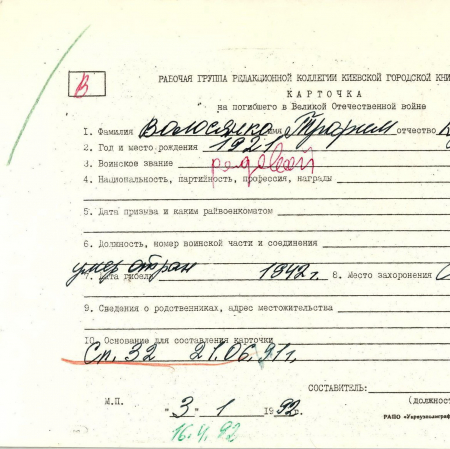 В
РАБОЧАЯ ГРУППА РЕДАКЦИОННОЙ КОЛЛЕГИИ КИЕВСКОЙ ГОРОДСКОЙ КНИ
КАРТОЧКА
на погибшего в Великой Отечественной войне
1. Фамилия Волосянко имя Трофим отчество
2. Год и место рождения 1921
3. Воинское звание рядовой
4. Национальность, партийность, профессия, награды
5. Дата призыва и каким райвоенкоматом
6. Должность, номер воинской части и соединения
умер от ран 1942 г.
7. Дата гибели 8. Место захоронения
9. Сведения о родственниках, адрес местожительства
10. Основание для составления карточки
Сп. 32 21.06.91 г.
СОСТАВИТЕЛЬ:
(должност
М.П. "3" 1 1992 г.
РАПО «Укрвузполиграф
16.4.92